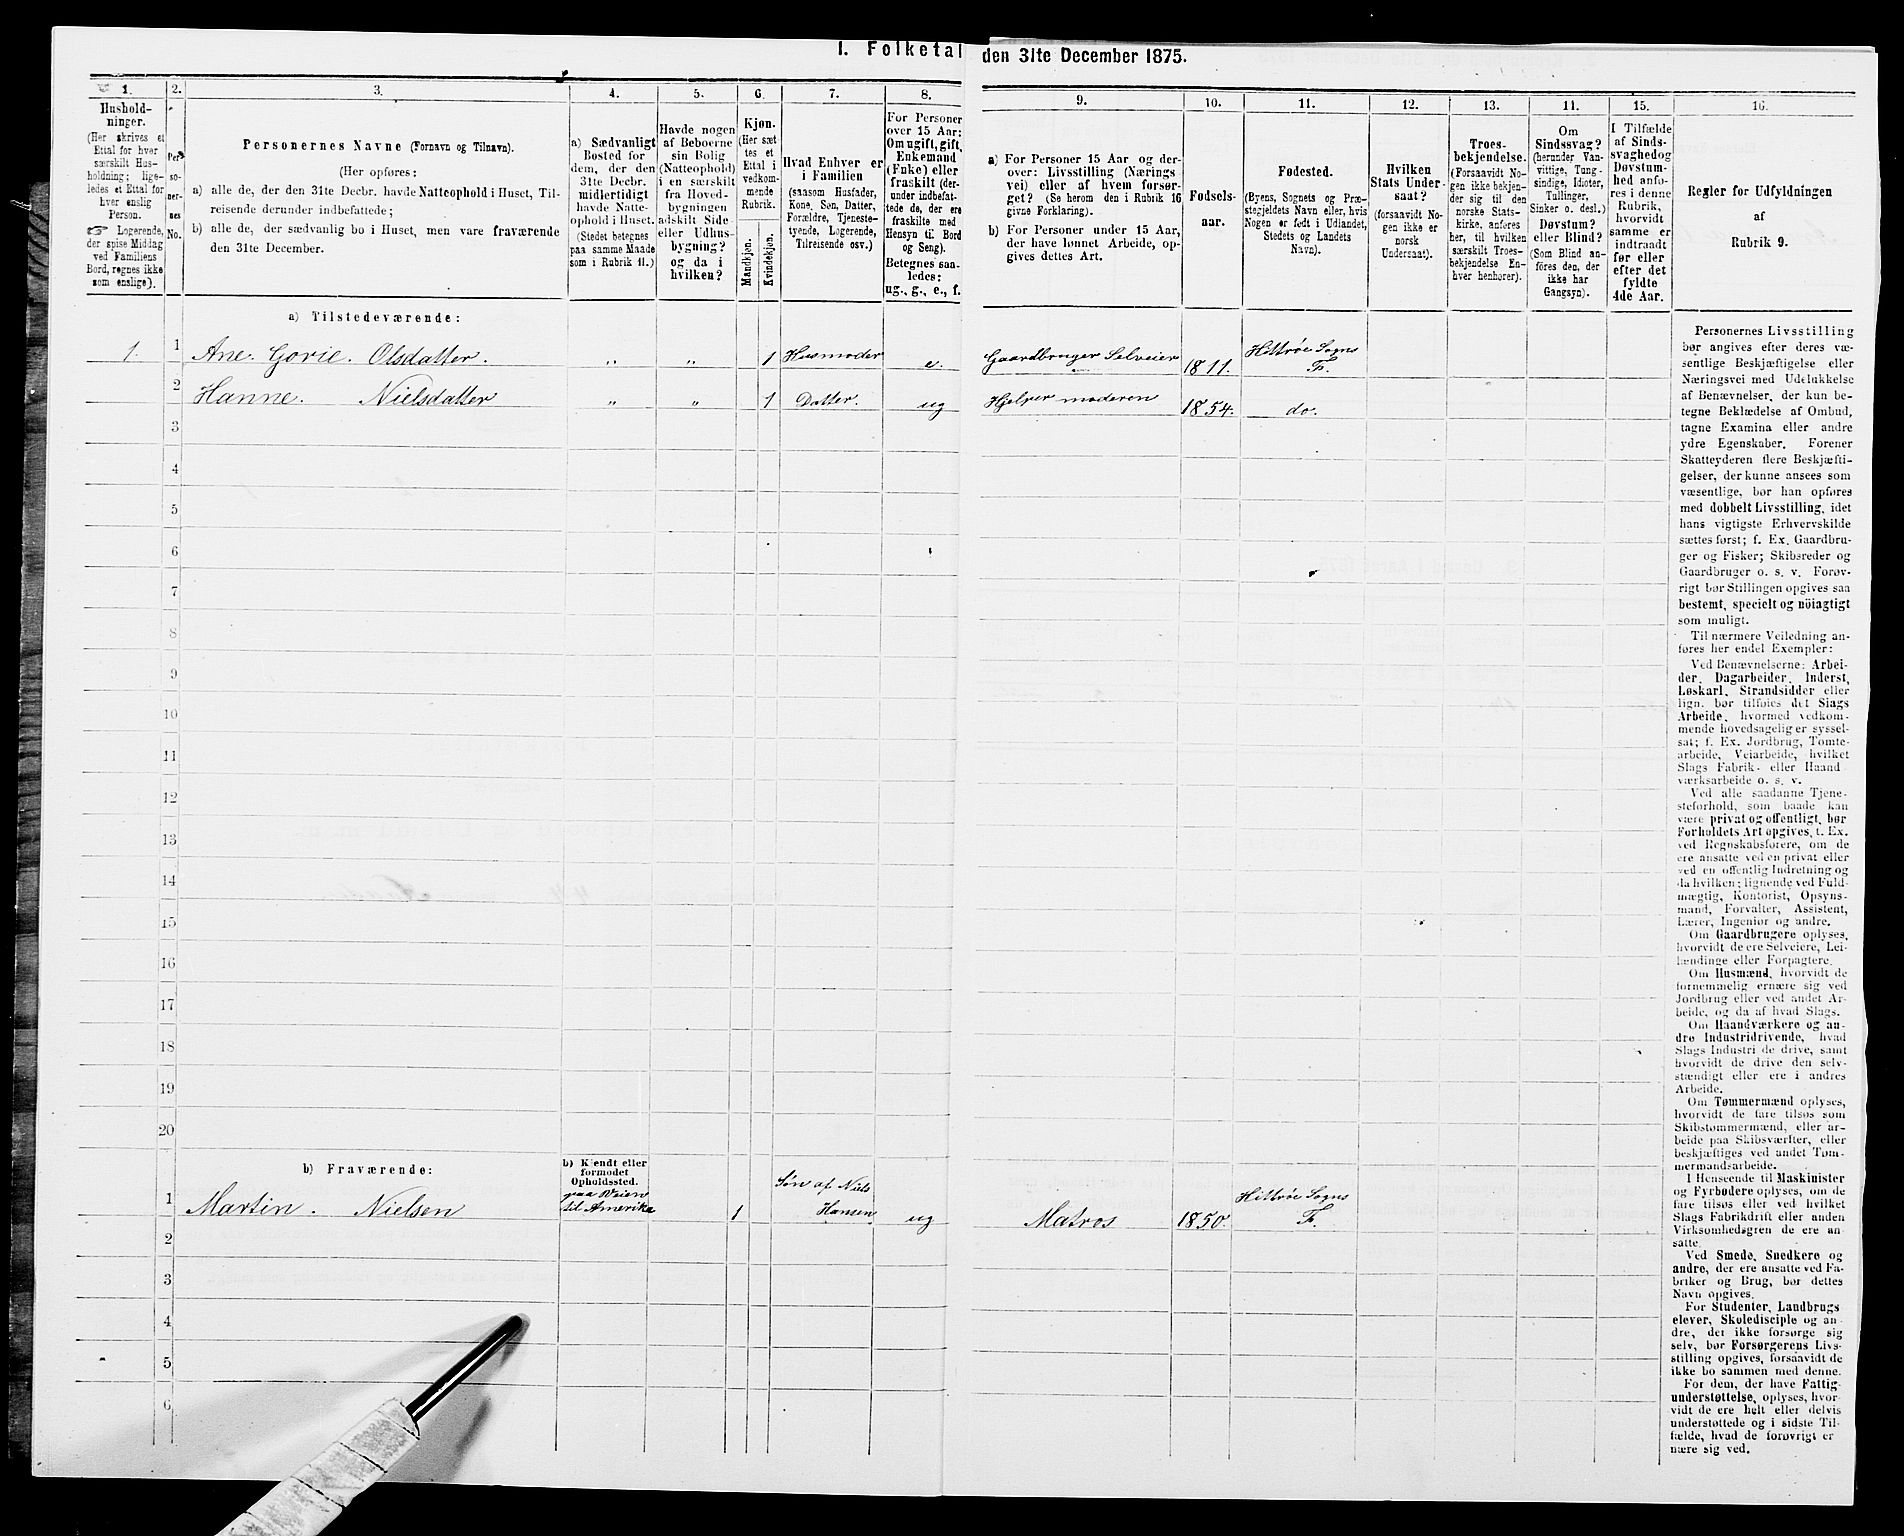 I. Folketal den 31te December 1875.
1.
Hushold-
ninger.
(Her skrives et
Ettal for hver
særskilt Hus-
holdning; lige-
ledes et Ettal for
hver enslig
Person.
☞ Logerende,
der spise Middag
ved Familiens
Bord, regnes ikke
som enslige).
2.
Per-
so-
ner-
nes
No.
3.
Personernes Navne (Fornavn og Tilnavn).
(Her opføres:
a) alle de, der den 31te Decbr. havde Natteophold i Huset, Til-
reisende derunder indbefattede;
b) alle de, der sædvanlig bo i Huset, men vare fraværende
den 31te December.
4.
a) Sædvanligt
Bosted for
dem, der den
31te Decbr.
midlertidigt
havde Natte-
ophold i Huset.
(Stedet betegnes
paa samme Maade
som i Rubrik 11.)
5.
Havde nogen
af Beboerne
sin Bolig
(Natteophold)
i en særskilt
fra Hoved-
bygningen
adskilt Side-
eller Udhus-
bygning?
og da i
hvilken?
6.
Kjøn.
(Her sæt
tes et
Ettal i
vedkom-
mende
Rubrik.
Mandkjøn.
Kvindekjøn.
7.
Hvad Enhver er
i Familien
(saasom Husfader,
Kone, Søn, Datter,
Forældre, Tjeneste-
tyende, Logerende,
Tilreisende osv.)
8.
For Personer
over 15 Aar:
Om ugift, gift,
Enkemand
(Enke) eller
fraskilt (der-
under indbefat-
tede de, der ere
fraskilte med
Hensyn til Bord
og Seng).
Betegnes saa-
ledes:
ug., g., e., f.
9.
a) For Personer 15 Aar og der-
over: Livsstilling (Nærings
vei) eller af hvem forsør-
get? (Se herom den i Rubrik 16
givne Forklaring).
b) For Personer under 15 Aar,
der have lønnet Arbeide, op-
gives dettes Art.
10.
Fødsels-
aar.
11.
Fødested.
(Byens, Sognets og Præ-
stegjeldets Navn eller, hvis
Nogen er født i Udlandet,
Stedets og Landets
Navn).
12.
Hvilken
Stats Under-
saat?
(forsaavidt No-
gen ikke er
norsk
Undersaat).
13.
Troes-
bekjendelse.
(Forsaavidt No-
gen ikke bekjen-
der sig til den
norske Stats-
kirke, anføres
her, til hvilken
særskilt Troes-
bekjendelse En-
hver henhører).
11.
Om
Sindssvag?
(herunder Van-
vittige, Tung-
sindige, Idioter,
Tullinger,
Sinker o. desl.)
Døvstum?
eller Blind?
(Som Blind an-
føres den, der
ikke har
Gangsyn).
15.
I Tilfælde
af Sinds-
svaghed og
Døvstum-
hed anfø-
res i denne
Rubrik,
hvorvidt
samme er
indtraadt
før eller
efter det
fyldte
4de Aar.
16.
Regler for Udfyldningen
af
Rubrik 9.
a) Tilstedeværende:
1. 1 Ane. Gorie. Olsdatter. „ „ 1 Husmoder e. Gaardbruger Selveier 1811. Hitterøe Sogns F.
2 Hanne. Nielsdatter „ „ 1 Datter. ug Hjelper moderen 1854. do.
3
4
5
6
7
8
9
10
11
12
13
14
15
16
17
18
19
20
b) Fraværende:
b) Kjendt eller
formodet
Opholdssted.
1 Martin. Nielsen paa Veien til Amerika 1 Søn af Niels Hansen ug Matros 1850. Hitterøe Sogns F.
2
3
4
5
6
Personernes Livsstilling
bør angives efter deres væ-
sentlige Beskjæftigelse eller
Næringsvei med Udelukkelse
af Benævnelser, der kun be-
tegne Beklædelse af Ombud,
tagne Examina eller andre
ydre Egenskaber. Forener
Skatteyderen flere Beskjæfti-
gelser, der kunne ansees som
væsentlige, bør han opføres
med dobbelt Livsstilling, idet
hans vigtigste Erhvervskilde
sættes først; f. Ex. Gaardbru-
ger og Fisker; Skibsreder og
Gaardbruger o. s. v. Forøv-
rigt bør Stillingen opgives saa
bestemt, specielt og nöiagtigt
som muligt.
Til nærmere Veiledning an-
føres her endel Exempler:
Ved Benævnelserne: Arbei-
der, Dagarbeider, Inderst,
Løskarl, Strandsidder eller
lign. bør tilføies det Slags
Arbeide, hvormed vedkom-
mende hovedsagelig er syssel-
sat; f. Ex. Jordbrug, Tomte-
arbeide, Veiarbeide, hvilket
Slags Fabrik- eller Haand-
værksarbeide o. s. v.
Ved alle saadanne Tjene-
steforhold, som baade kan
være privat og offentligt, bør
Forholdets Art opgives, f. Ex.
ved Regnskabsførere, om de
ere ansatte ved en privat eller
ved en offentlig Indretning og
da hvilken; lignende ved Fuld-
mægtig, Kontorist, Opsyns-
mand, Forvalter, Assistent,
Lærer, Ingeniør og andre.
Om Gaardbrugere oplyses,
hvorvidt de ere Selveiere, Lei-
lændinge eller Forpagtere.
Om Husmænd, hvorvidt de
fornemmelig ernære sig ved
Jordbrug eller ved andet Ar-
beide, og da af hvad Slags.
Om Haandværkere og an-
dre Industridrivende, hvad
Slags Industri de drive, samt
hvorvidt de drive den selv-
stændigt eller ere i andres
Arbeide.
Om Tømmermænd oplyses,
hvorvidt de fare tilsøs som
Skibstømmermænd, eller ar-
beide paa Skibsværfter, eller
beskjæftiges ved andet Tøm-
mermandsarbeide.
I Henseende til Maskinister
og Fyrbødere oplyses, om de
fare tilsøs eller ved hvilket
Slags Fabrikdrift eller anden
Virksomhedsgren de ere an-
satte.
Ved Smede, Snedkere og
andre, der ere ansatte ved Fa-
briker og Brug, bør dettes
Navn opgives.
For Studenter, Landbrugs
elever, Skoledisciple og an
dre, der ikke forsørge sig
selv, bør Forsørgerens Livs-
stilling opgives, forsaavidt de
ikke bo sammen med denne.
For dem, der have Fattig-
understøttelse, oplyses, hvor-
vidt de ere helt eller delvis
understøttede og i sidste Til-
fælde, hvad de forøvrigt er
nære sig ved.